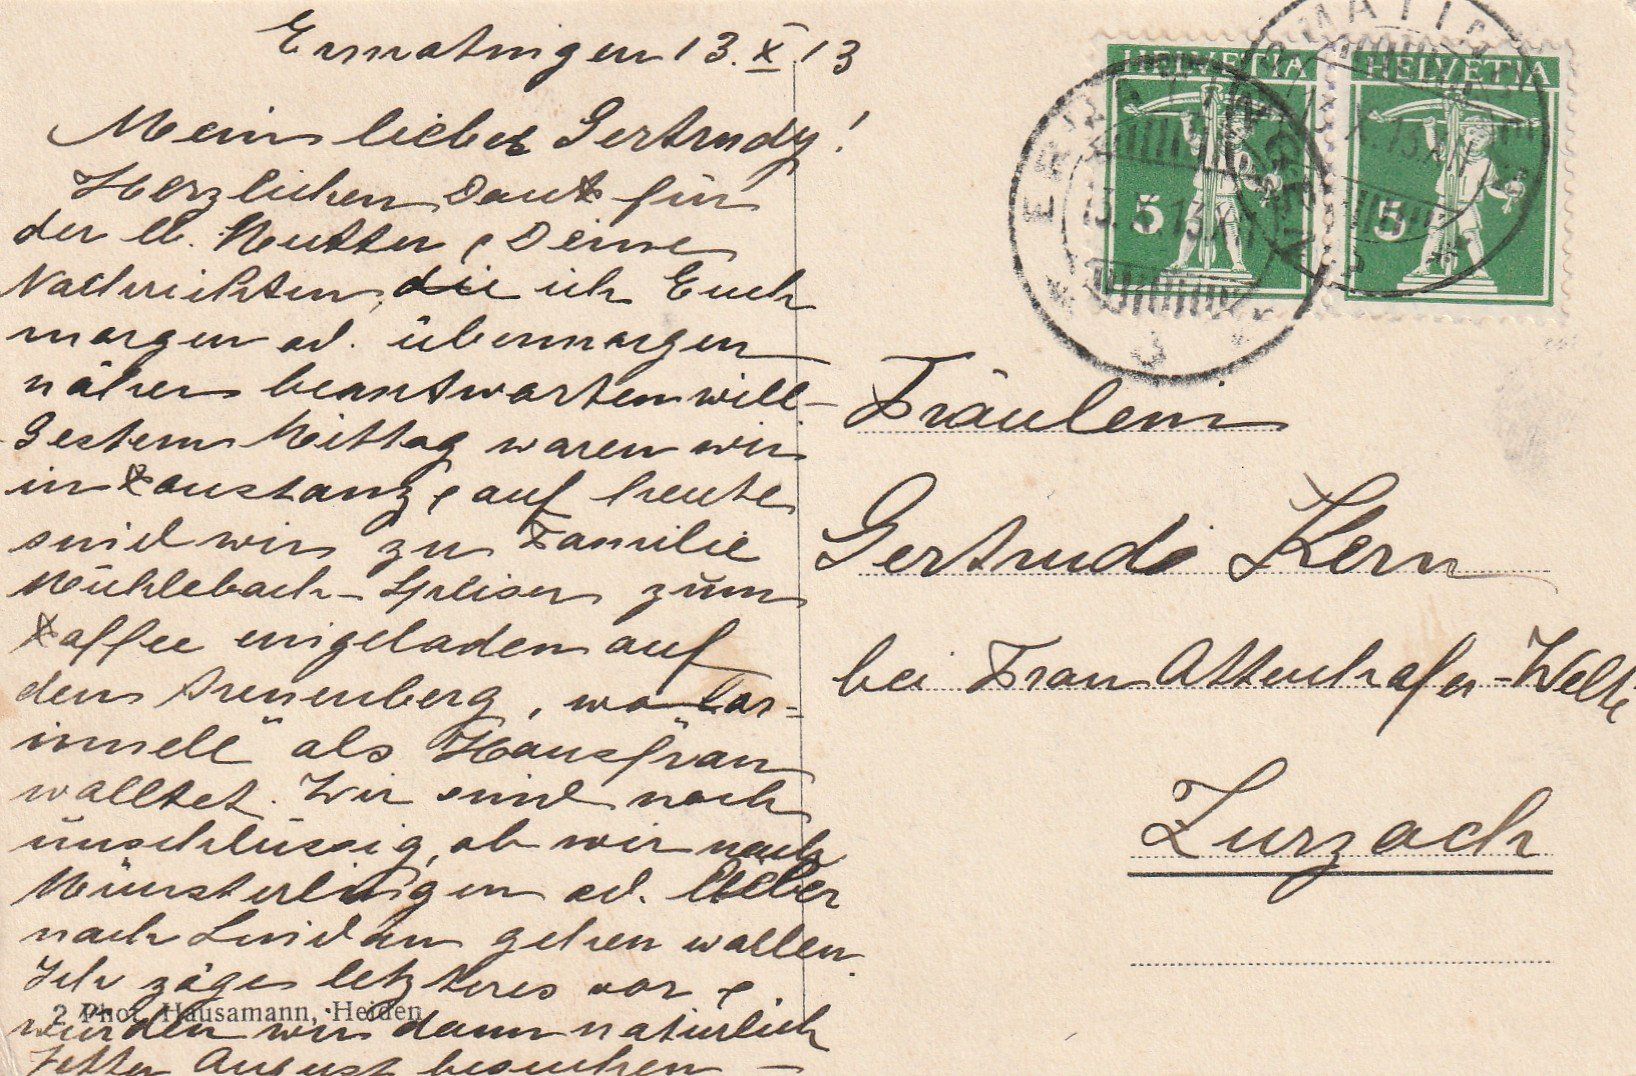 Ermatingen 13. X. 13
Mein liebes Gertrudy!
Herzlichen Dank für
der lb. Mutter & Deine
Nachrichten, die ich Euch
morgen od. übermorgen
näher beantworten will -
Gestern Mittag waren wir
in Konstanz & auf heute
sind wir zu Familie
Mühlebach-Speiser zum
Kaffee eingeladen auf
den Arenenberg, wo
als "Hausfrau"
walltet. Wir sind noch
unschlüssig, ob wir nach
Münsterlingen od. lieber
nach Lindau gehen wollen.
Ich zöge letzteres vor &
würden wir dann natürlich
Vetter August besuchen -
2 Phot. Hausamann, Heiden
HELVETIA
5
HELVETIA
5
ERMATINGEN
13. X. 13. XII
ERMATINGEN
13. X. 13. XII
Fräulein
Gertrud Kern
bei Frau Attenhofer-Welti
Zurzach